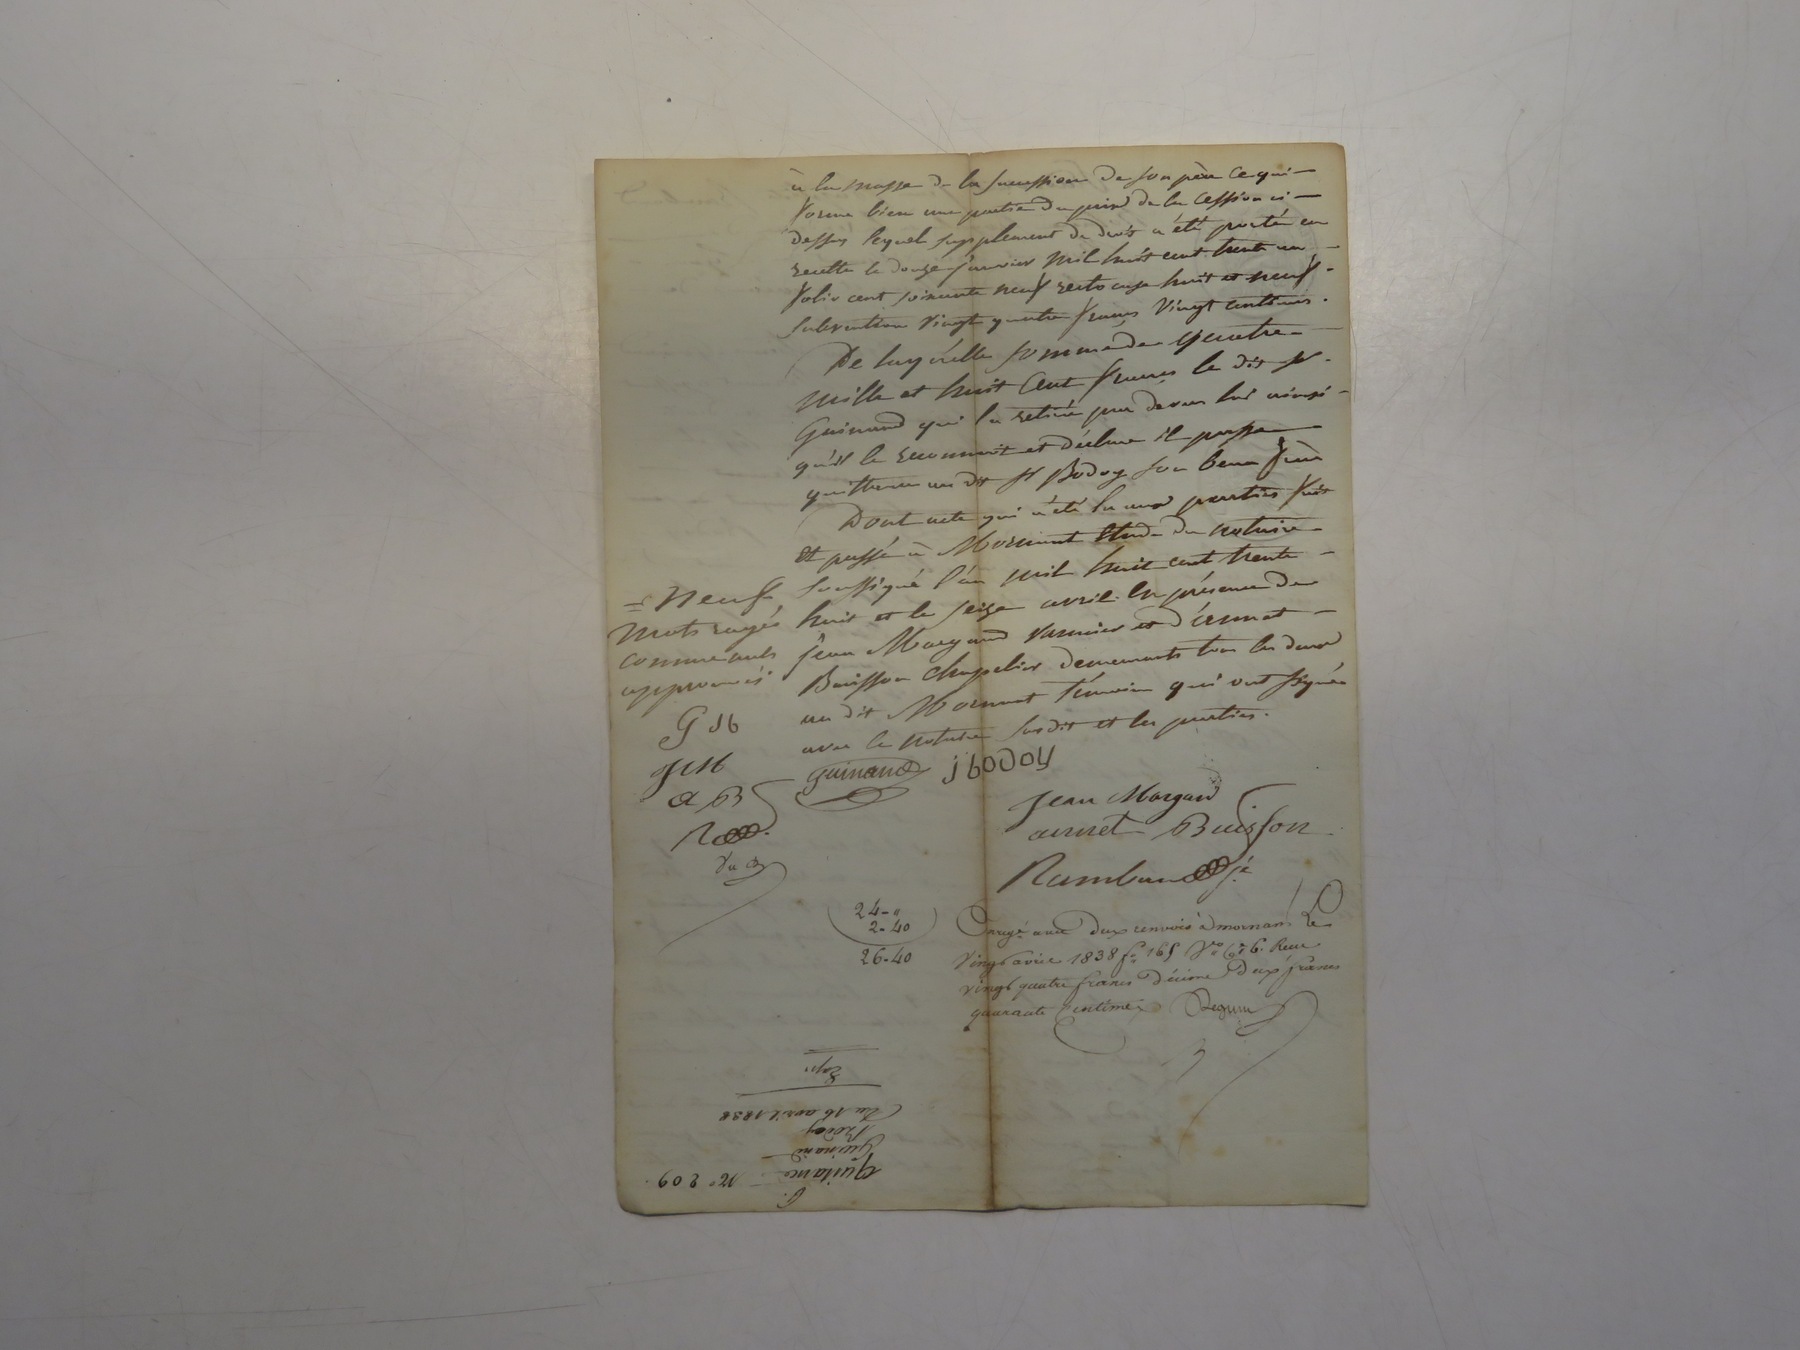 à la masse de la succession de son père ce qui
forme bien une partie du prix de la cession ci
dessus lequel supplement de droit a été porté en
recette le douze janvier mil huit cent trente un
folio cent soixante neuf recto case huit et neuf
subvention vingt quatre francs vingt centimes.
De laquelle somme de quatre
mille et huit cent francs le dit sr.
Guinand qui l'a retirée par devers lui ainsi
qu'il le reconnait et déclare il passe
quittance au dit sr Bodoy son beau frère
Dont acte qui a été lu aux parties fait
et passé à Mornant étude du notaire
soussigné l'an mil huit cent trente
huit et le seize avril en présence de
Jean Margand vannier et d'ennet
Buisson chapelier demeurants tous les deux
au dit Mornant témoins qui ont signés
avec le notaire susdit et les parties.
= Neuf
mots rayés
comme nuls
approuvés
G
JM
A B
R
Guinand
J BODOY
Jean Margand
annet Buisson
Rambaud
24-"
2-40
26-40
Enregé avec deux renvois à mornant Le
vingt avril 1838 fo 165 Vo Ces 6. Reçu
vingt quatre francs décime deux francs
quarante centimes
Expé
Du 16 avril 1838
Bodoy
Guinand
Quitance
No 209.